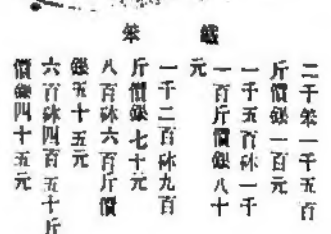 鐵 笨
二千笨一千五百
斤價銀一百元
一千五百砵一千
一百斤價銀八十
元
一千二百砵九百
斤價銀七十元
八百砵六百斤價
銀五十五元
六百砵四百五十斤
價銀四十五元